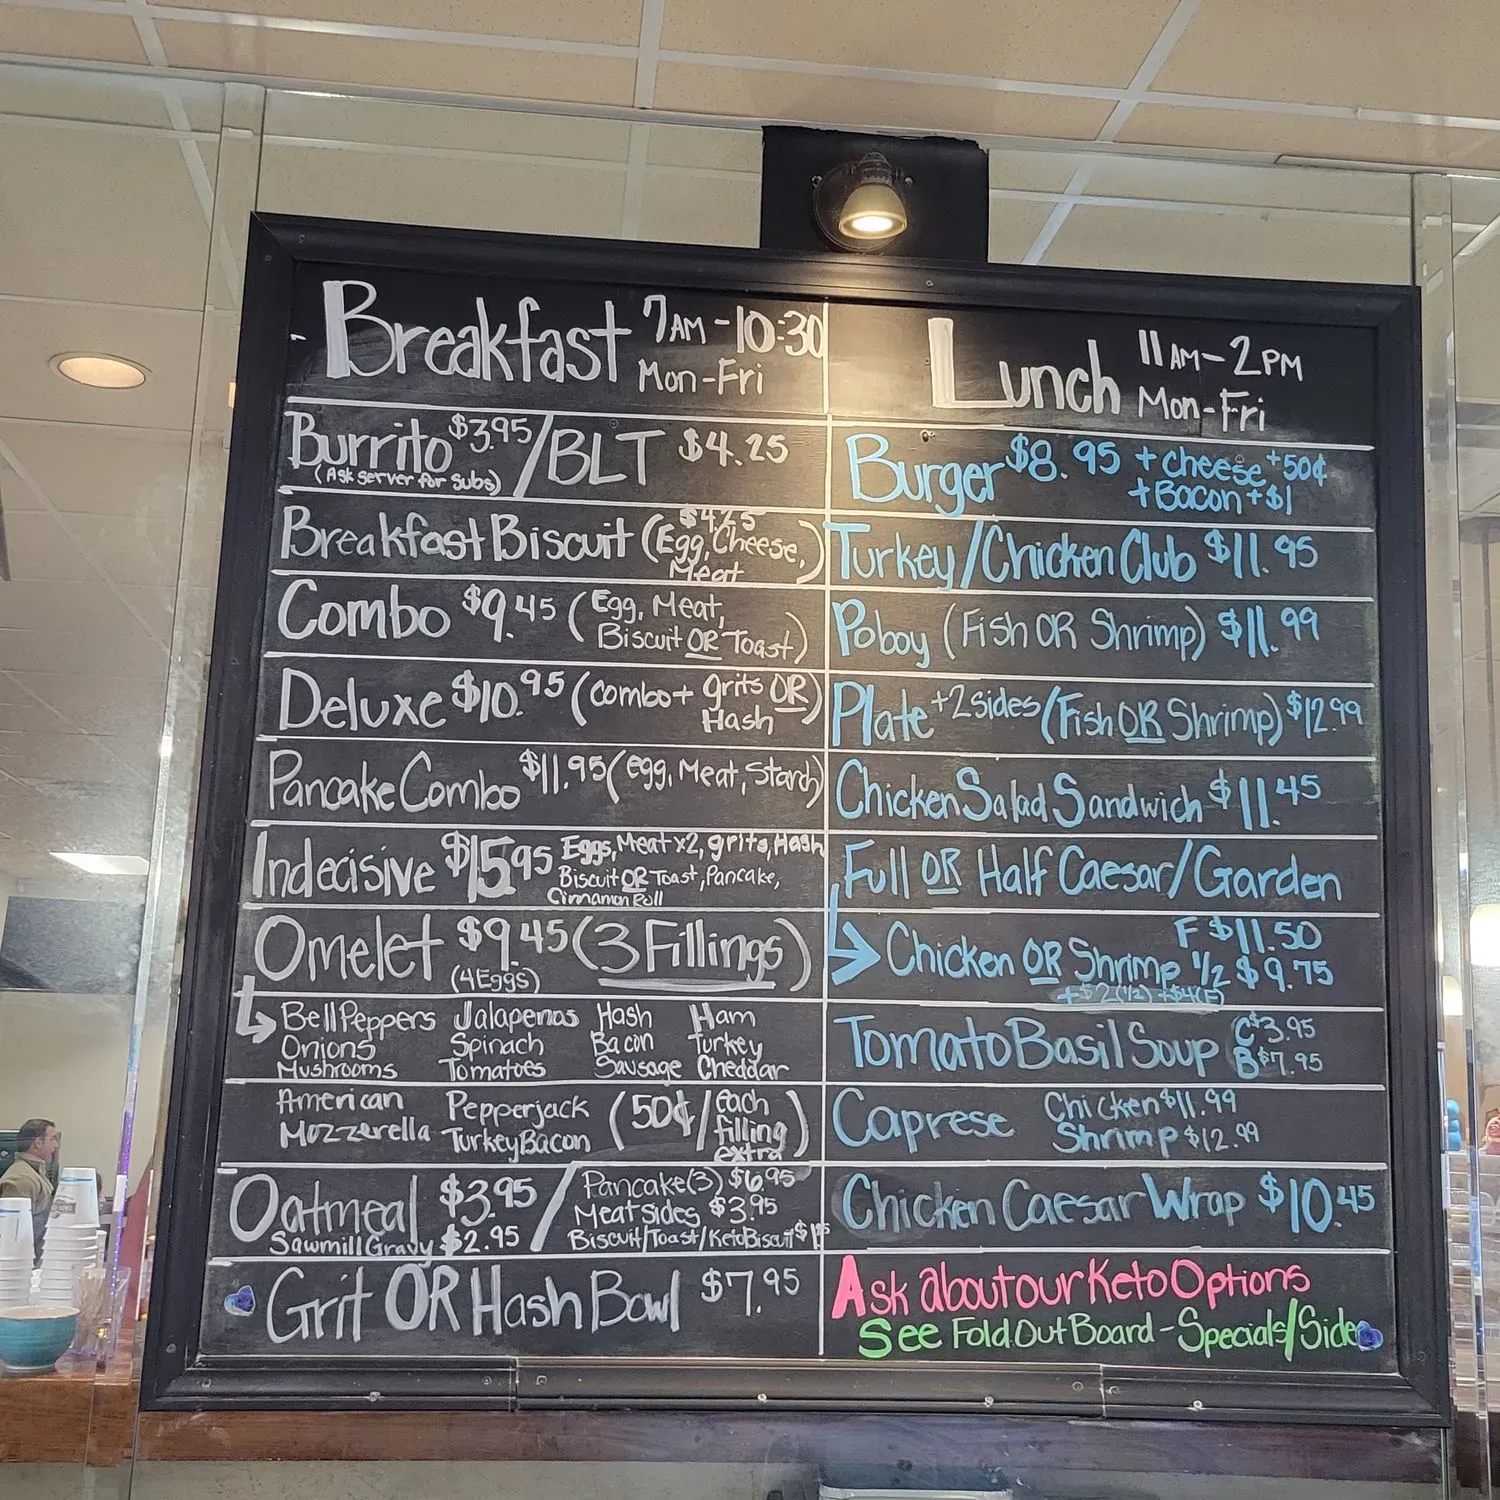 Breakfast 7AM-10:30
Mon-Fri
Burrito $3.95/BLT $4.25
(Ask server for subs)
Breakfast Biscuit ($4.25
Egg, Cheese,
Meat)
Combo $9.45 (Egg, Meat,
Biscuit OR Toast)
Deluxe $10.95 (combo+ grits OR
Hash)
Pancake Combo $11.95 (egg, Meat, Starch)
Indecisive $15.95 Eggs, Meat x2, grits, Hash
Biscuit OR Toast, Pancake,
Cinnamon Roll
Omelet $9.45 (3 Fillings)
(4 Eggs)
Bell Peppers Jalapenos Hash Ham
Onions Spinach Bacon Turkey
Mushrooms Tomatoes Sausage Cheddar
American Pepperjack (50¢/each
Mozzerella Turkey Bacon filling
extra)
Oatmeal $3.95 / Pancake(3) $6.95
Meat sides $3.95
Sawmill Gravy $2.95 Biscuit/Toast/Keto Biscuit
Grit OR Hash Bowl $7.95
Lunch 11AM-2PM
Mon-Fri
Burger $8.95 +cheese +50¢
+Bacon +$1
Turkey/Chicken Club $11.95
Poboy (Fish OR Shrimp) $11.99
Plate +2 sides (Fish OR Shrimp) $12.99
Chicken Salad Sandwich $11.45
Full OR Half Caesar/Garden
F $11.50
Chicken OR Shrimp 1/2 $9.75
+$2(1/2) +$4(F)
Tomato Basil Soup C $3.95
B $7.95
Caprese Chicken $11.99
Shrimp $12.99
Chicken Caesar Wrap $10.45
Ask about our Keto Options
See Fold Out Board - Specials/Side